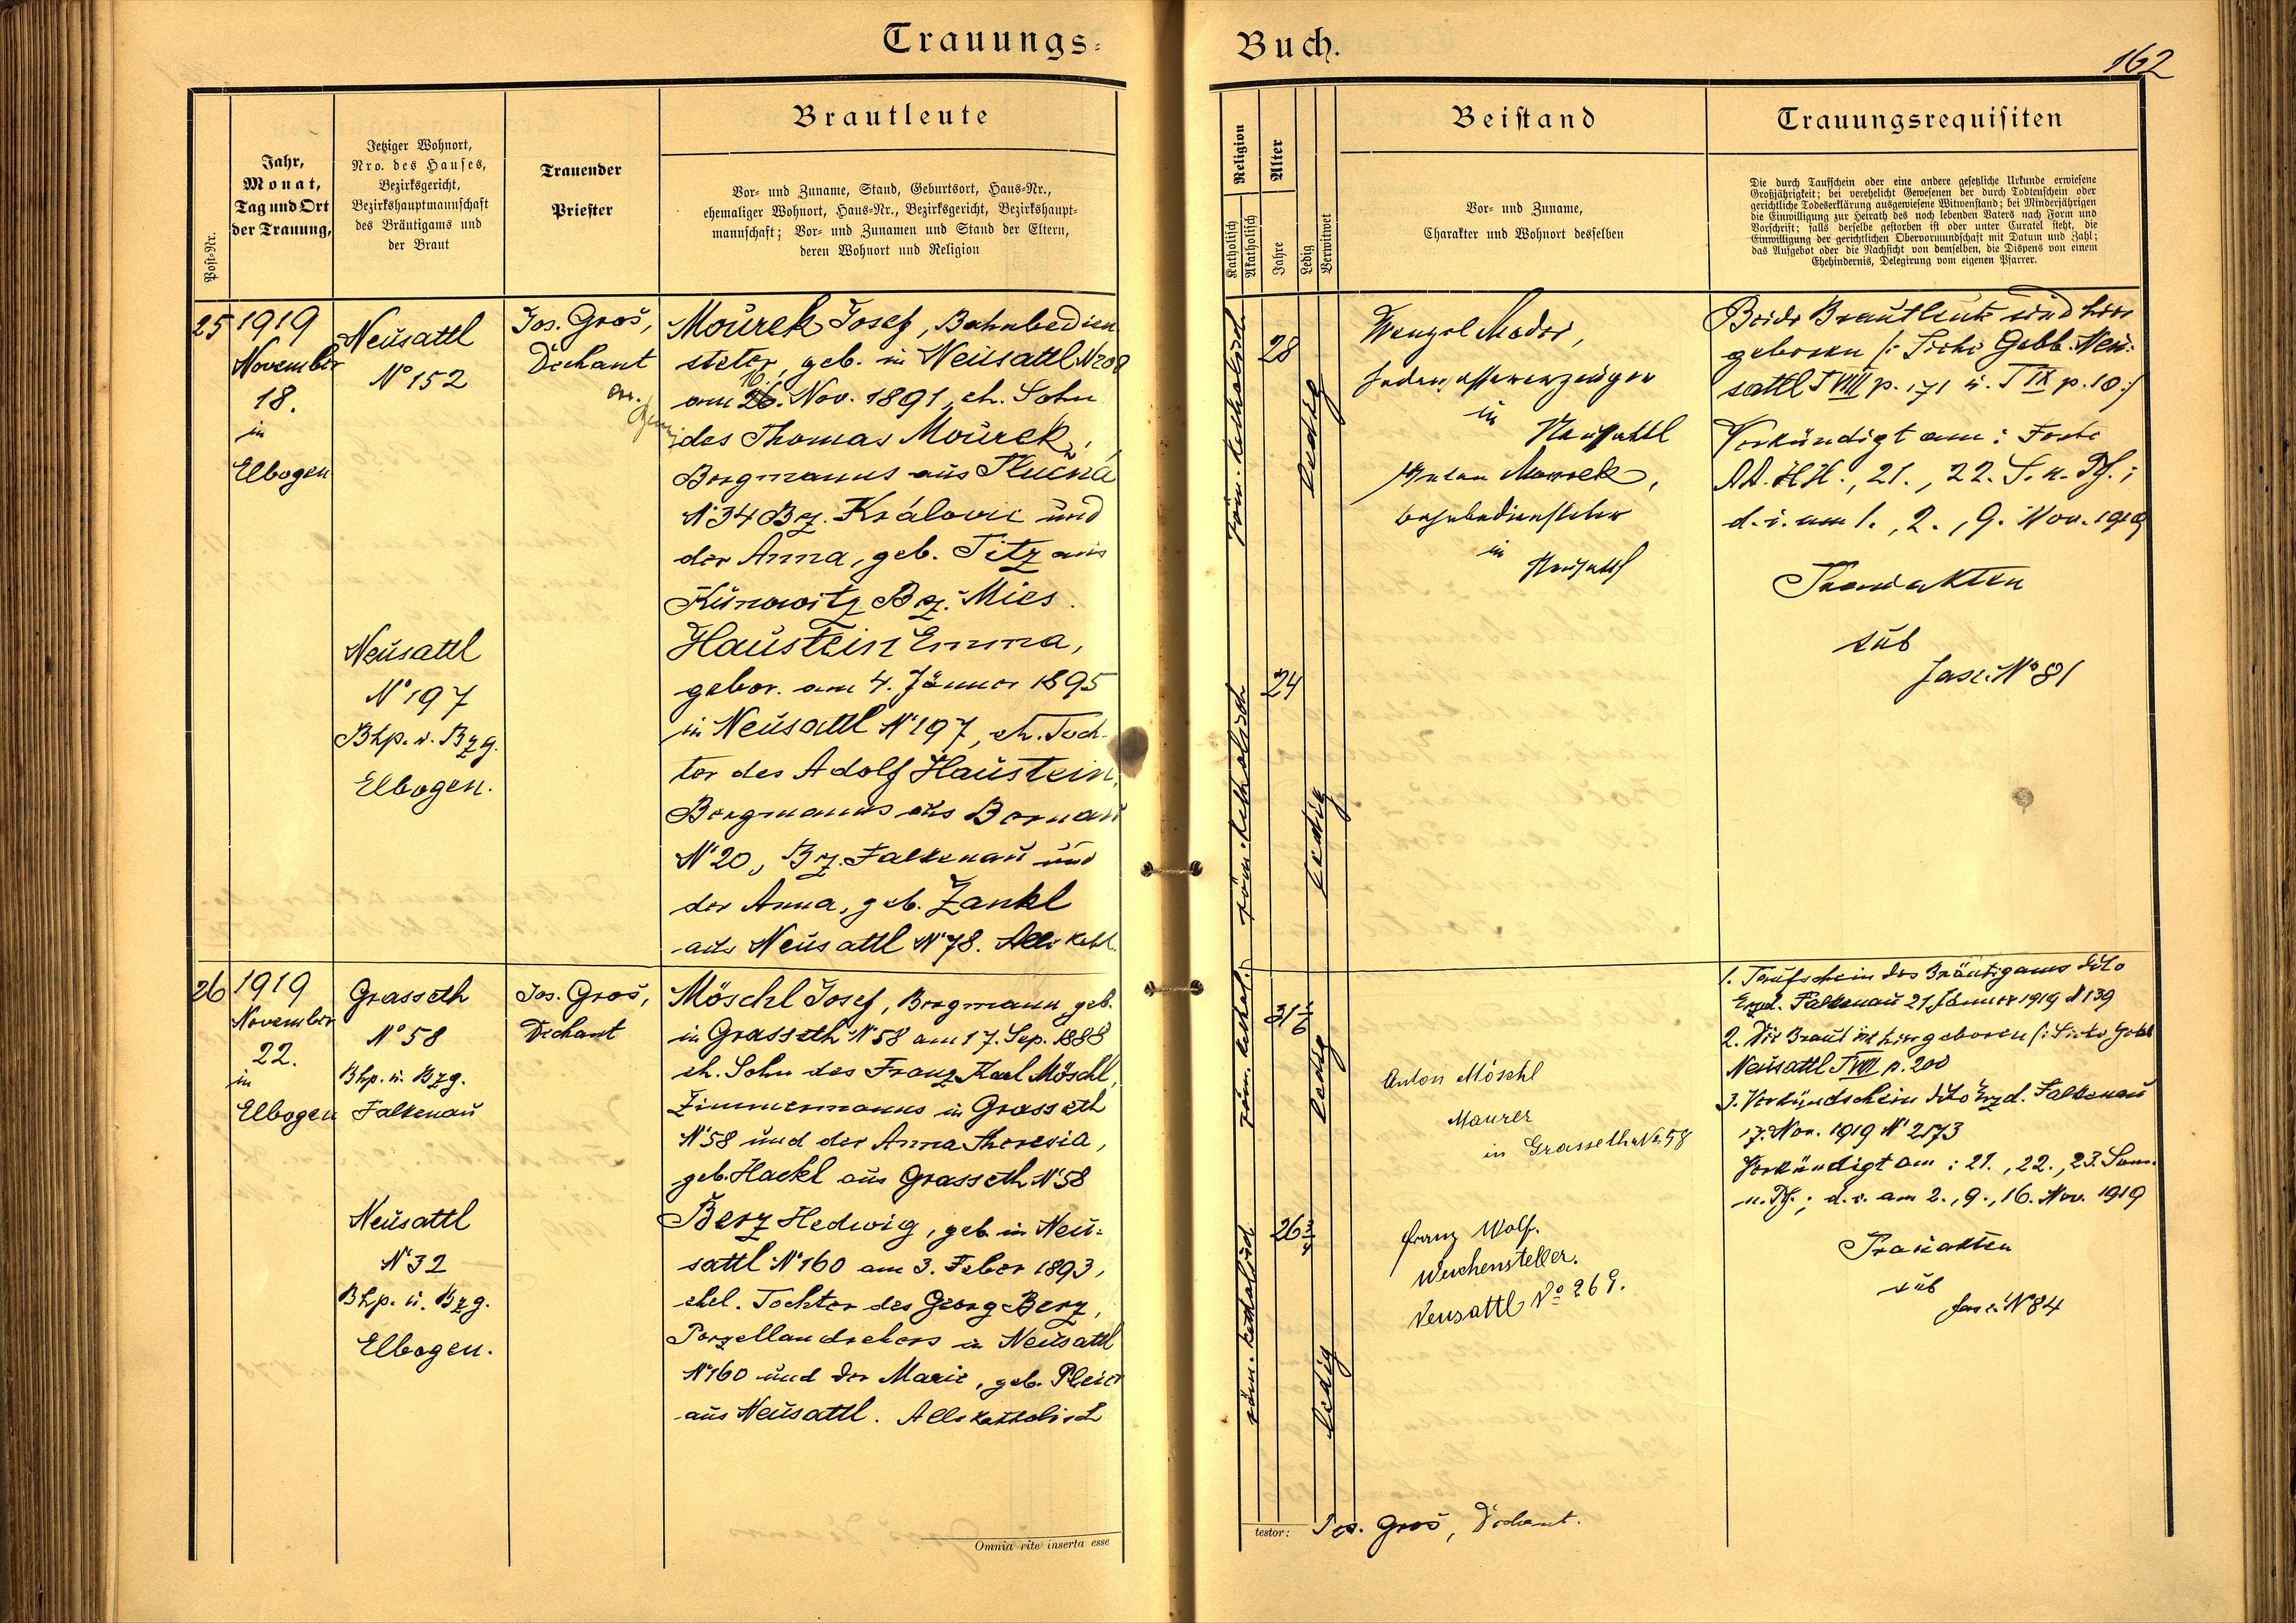 Trauungs-
Buch.
162
Post-Nr.
Jahr,
Monat,
Tag und Ort
der Trauung,
Jetziger Wohnort,
Nro. des Hauses,
Bezirksgericht,
Bezirkshauptmannschaft
des Bräutigams und
der Braut
Trauender
Priester
Brautleute
Vor- und Zuname, Stand, Geburtsort, Haus-Nr.,
ehemaliger Wohnort, Haus-Nr., Bezirksgericht, Bezirkshaupt-
mannschaft; Vor- und Zunamen und Stand der Eltern,
deren Wohnort und Religion
Religion
Katholisch
Akatholisch
Alter
Jahre
Ledig
Verwitwet
Beistand
Vor- und Zuname,
Charakter und Wohnort desselben
Trauungsrequisiten
Die durch Taufschein oder eine andere gesetzliche Urkunde erwiesene
Großjährigkeit; bei verehelicht Gewesenen der durch Todtenschein oder
gerichtliche Todeserklärung ausgewiesene Witwenstand; bei Minderjährigen
die Einwilligung zur Heirath des noch lebenden Vaters nach Form und
Vorschrift; falls derselbe gestorben ist oder unter Curatel steht, die
Einwilligung der gerichtlichen Obervormundschaft mit Datum und Zahl;
das Aufgebot oder die Nachsicht von demselben, die Dispens von einem
Ehehindernis, Delegirung vom eigenen Pfarrer.
25
1919
November
18.
in
Elbogen
Neusattl
Nº 152
Neusattl
Nº 197
Bhp. u. Bzg.
Elbogen.
Jos. Groš,
Dechant
Mourek Josef, Bahnbedien
steter, geb. in Neusattl N208
am 26. Nov. 1891, eh. Sohn
16.
des Thomas Mourek,
Bergmanns aus Tlučna
Nº 34 Bz. Královic und
der Anna, geb. Titz aus
Kunowitz Bz. Mies.
Haustein Emma,
gebor. am 4. Jänner 1895
in Neusattl Nº 197, eh. Toch-
ter des Adolf Haustein,
Bergmanns aus Bernau
Nº 20, Bz. Falkenau und
der Anna, geb. Zankl
aus Neusattl Nº 78. Alle kath.
röm. katholisch
28
ledig
röm. katholisch
24
ledig
Wenzel Mader,
in
Neusattl
Anton Mourek,
Bahnbediensteter
in
Neusattl
Beide Brautleute sind hier
geboren /: Siehe Gebb. Neu-
sattl T VIII p. 171 u. T IX p. 10 :/
Verkündigt am: Feste
A.A. H.H., 21., 22. S. n. Pf.;
d. i. am 1., 2., 9. Nov. 1919
Trauakten
sub
Fasc. Nº 81
26
1919
November
22.
in
Elbogen
Grasseth
Nº 58
Bhp. u. Bzg.
Falkenau
Neusattl
Nº 32
Bhp. u. Bzg.
Elbogen.
Jos. Groš,
Dechant
Möschl Josef, Bergmann, geb.
in Grasseth Nº 58 am 17. Sep. 1888
eh. Sohn des Franz Karl Möschl,
Zimmermanns in Grasseth
Nº 58 und der Anna Theresia,
geb. Hackl aus Grasseth Nº 58
Berz Hedwig, geb. in Neu-
sattl Nº 160 am 3. Feber 1893,
ehel. Tochter des Georg Berz,
Porzellandrehers in Neusattl
Nº 160 und der Marie, geb. Pleier
aus Neusattl. Alle katholisch
röm. kathol.
31 1/6
ledig
röm. katholisch
26 3/4
ledig
Anton Möschl
Maurer
in Grasseth No 58
Franz Wolf.
Weichensteller.
Neusattl Nº 269.
1. Taufschein des Bräutigams dtto
Erzd. Falkenau 21. Jänner 1919 N 139
2. Die Braut ist hier geboren /: Siehe Gebb
Neusattl T VIII p. 200
3. Verkündschein dtto Erzd. Falkenau
17. Nov. 1919 Nº 2173
Verkündigt am: 21., 22., 23. Sonn.
n. Pf.; d. i. am 2., 9., 16. Nov. 1919
Trauakten
sub
Fasc. Nº 84
Omnia rite inserta esse
testor: Jos. Groš, Dechant.